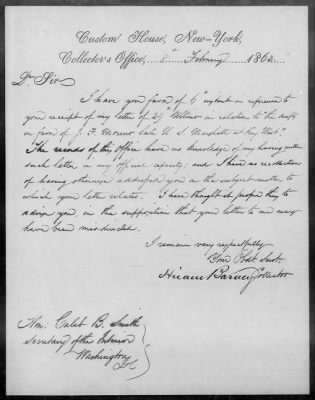 Custom House, New-York,
Collector's Office, 8th February 1862
Dr Sir
I have your favor of 6th instant in reference to
your receipt of my letter of 29th Ultimo in relation to the draft
in favor of J. F. Morent late U. S. Marshall at Key West.
The records of this office have no knowledge of my having written
such letter in my official capacity; and I have no recollection
of having otherwise addressed you on the subject matter to
which your letter relates. I have thought it proper thus to
advise you, on the supposition that your letter to me may
have been misdirected.
I remain very respectfully
Your Obdt. Servt.
Hiram Barney Collector
Hon: Caleb B. Smith
Secretary of the Interior
Washington
D.C.